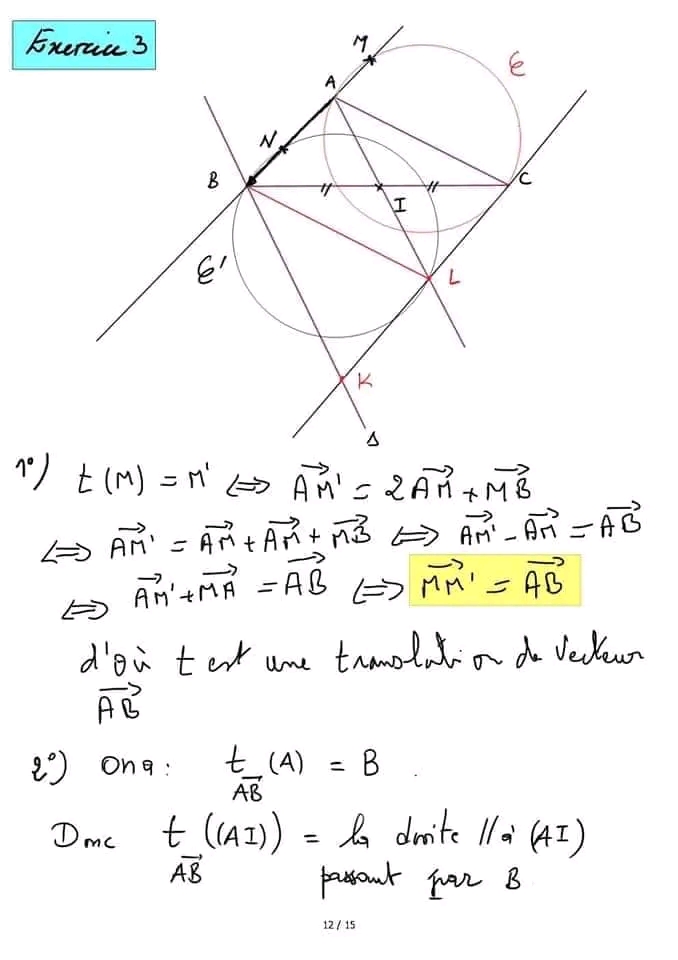 Exercice 3
M
A
C
N
B
C
I
C'
L
K
Δ
1°) t(M) = M' ⇔ AM' = 2AM + MB
⇔ AM' = AM + AM + MB ⇔ AM' - AM = AB
⇔ AM' + MA = AB ⇔ MM' = AB
d'où t est une translation de vecteur
AB
2°) On a : t_AB (A) = B .
Donc t_AB ((AI)) = la droite // à (AI)
passant par B
12 / 15